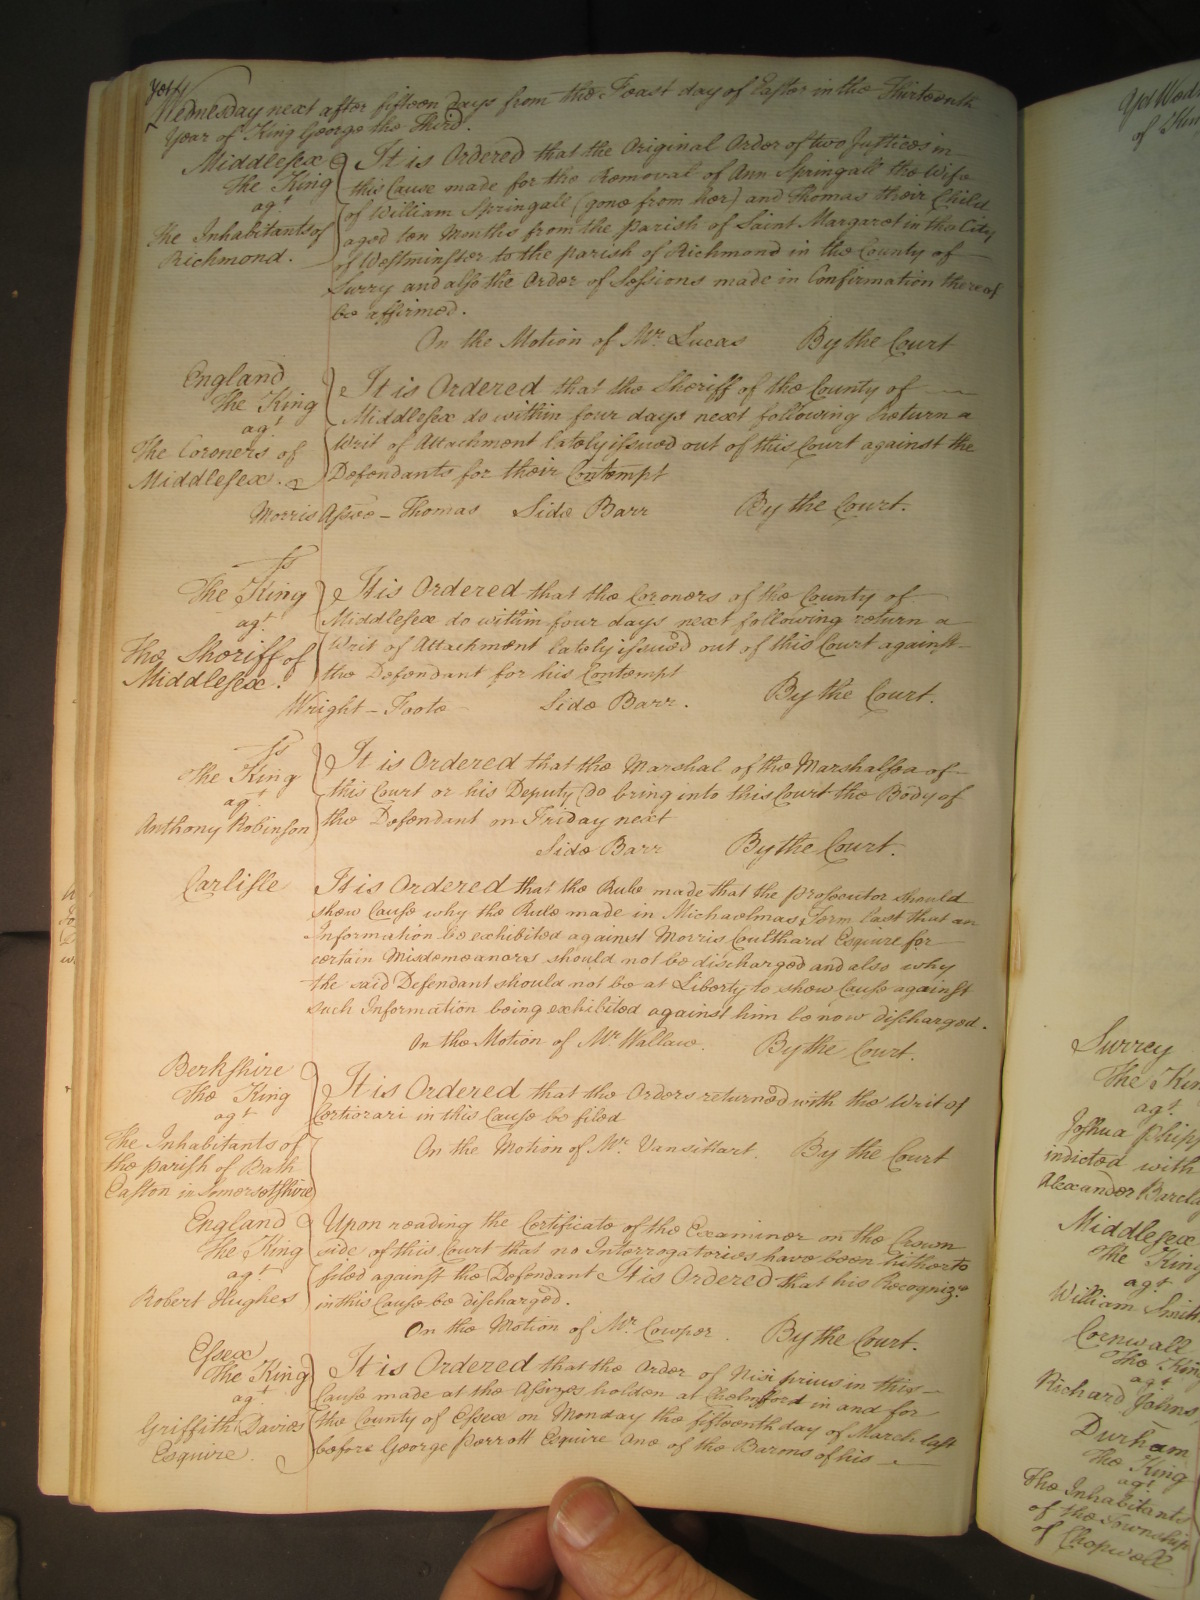 Yet
Wednesday next after fifteen days from the Feast day of Easter in the Thirteenth
Year of King George the Third.
Middlesex
The King
agt
The Inhabitants of
Richmond.
It is Ordered that the Original Order of two Justices in
this Cause made for the Removal of Ann Springall the Wife
of William Springall (gone from her) and Thomas their Child
aged ten Months from the parish of Saint Margaret in the City
of Westminster to the parish of Richmond in the County of
Surry and also the Order of Sessions made in Confirmation thereof
be affirmed.
On the Motion of Mr. Lucas By the Court
England
The King
agt
The Coroners of
Middlesex.
It is Ordered that the Sheriff of the County of
Middlesex do within four days next following Return a
Writ of Attachment lately issued out of this Court against the
Defendants for their Contempt
Morris Assee - Thomas Side Barr By the Court.
Ss
The King
agt
The Sheriff of
Middlesex.
It is Ordered that the Coroners of the County of
Middlesex do within four days next following return a
Writ of Attachment lately issued out of this Court against
the Defendant for his Contempt
Wright - Foote Side Barr. By the Court.
Ss
The King
agt
Anthony Robinson
It is Ordered that the Marshal of the Marshalsea of
this Court or his Deputy do bring into this Court the Body of
the Defendant on Friday next
Side Barr By the Court.
Carlisle
It is Ordered that the Rule made that the prosecutor should
shew Cause why the Rule made in Michaelmas Term last that an
Information be exhibited against Morris Coulthard Esquire for
certain Misdemeanors should not be discharged and also why
the said Defendant should not be at Liberty to shew Cause against
such Information being exhibited against him be now discharged.
On the Motion of Mr Wallace. By the Court.
Berkshire
The King
agt
The Inhabitants of
the parish of Bath
Easton in Somersetshire
It is Ordered that the Orders returned with the Writ of
Certiorari in this Cause be filed
On the Motion of Mr. Vansittart. By the Court
England
The King
agt
Robert Hughes
Upon reading the Certificate of the Examiner on the Crown
side of this Court that no Interrogatories have been hitherto
filed against the Defendant It is Ordered that his Recogniz.e
in this Cause be discharged.
On the Motion of Mr. Cowper. By the Court.
Essex
The King
agt
Griffith Davies
Esquire.
It is Ordered that the Order of Nisi prius in this
Cause made at the Assizes holden at Chelmsford in and for
the County of Essex on Monday the fifteenth day of March last
before George Perrott Esquire One of the Barons of his
Surrey
The Kin
agt.
Joshua Phipp
indicted with
Alexander Barcla
Middlesex
The King
agt
William Smith
Cornwall
The King
agt
Richard Johns
Durham
The King
agt
The Inhabitants
of the Township
of Chopwell.